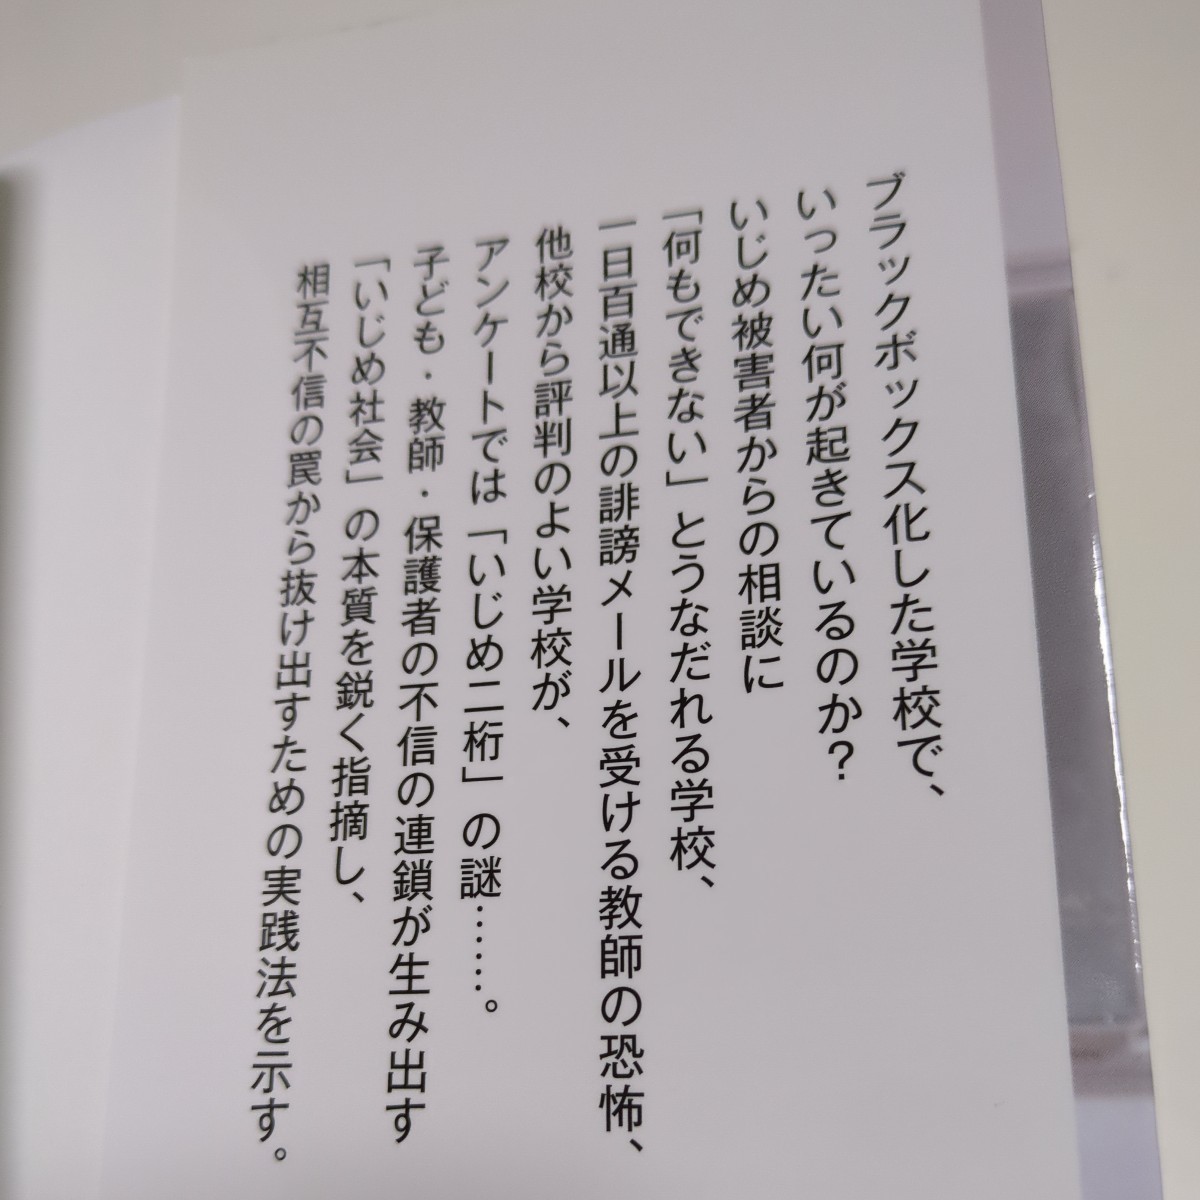 ブラックボックス化した学校で、
いったい何が起きているのか？
いじめ被害者からの相談に
「何もできない」とうなだれる学校、
一日百通以上の誹謗メールを受ける教師の恐怖、
他校から評判のよい学校が、
アンケートでは「いじめ二桁」の謎……。
子ども・教師・保護者の不信の連鎖が生み出す
「いじめ社会」の本質を鋭く指摘し、
相互不信の罠から抜け出すための実践法を示す。